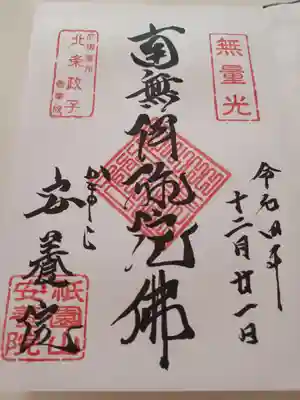 無量光
令和四年
十二月廿一日
南無阿弥陀佛
北条政子
香華院
かまくら
安養院
祇園山
安養院